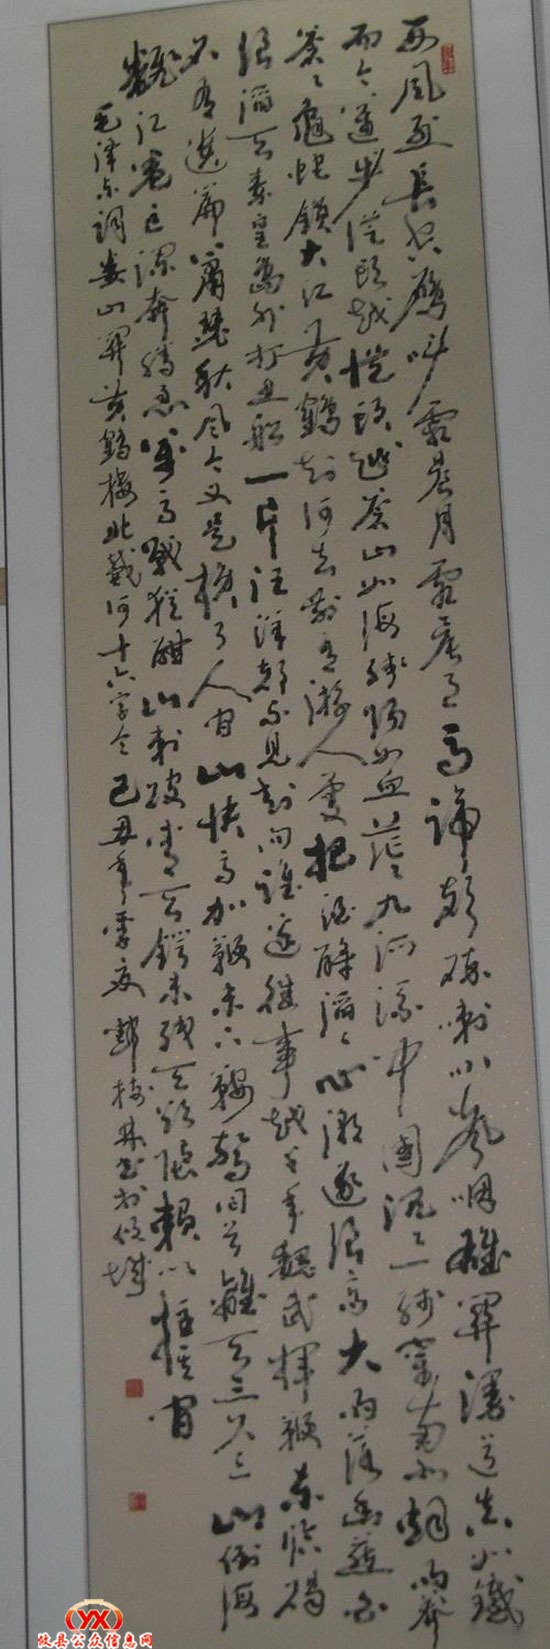 西风烈长空雁叫霜晨月霜晨月马蹄声碎喇叭声咽雄关漫道真如铁
而今迈步从头越从头越苍山如海残阳如血茫茫九派流中国沉沉一线穿南北烟雨莽
苍苍龟蛇锁大江黄鹤知何去剩有游人处把酒酹滔滔心潮逐浪高大雨落幽燕白
浪滔天秦皇岛外打鱼船一片汪洋都不见知向谁边往事越千年魏武挥鞭东临碣
石有遗篇萧瑟秋风今又是换了人间山快马加鞭未下鞍惊回首离天三尺三山倒海
翻江卷巨澜奔腾急万马战犹酣山刺破青天锷未残天欲堕赖以拄其间
毛泽东词娄山关黄鹤楼北戴河十六字令己丑年季夏梅林书于攸城
YX
攸县公众信息网